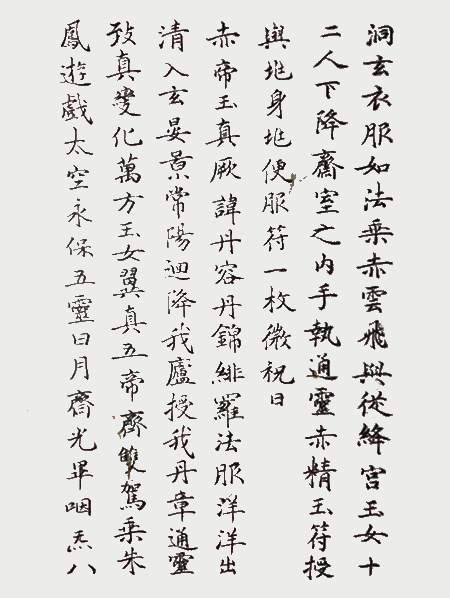 洞玄衣服如法乘赤雲飛輿從絳宮玉女十
二人下降齋室之內手執通靈赤精玉符授
與兆身兆便服符一枚微祝曰
赤帝玉真厥諱丹容丹錦緋羅法服洋洋出
清入玄晏景常陽迴降我廬授我丹章通靈
致真變化萬方玉女翼真五帝齊雙駕乘朱
鳳遊戲太空永保五靈日月齊光畢咽炁八